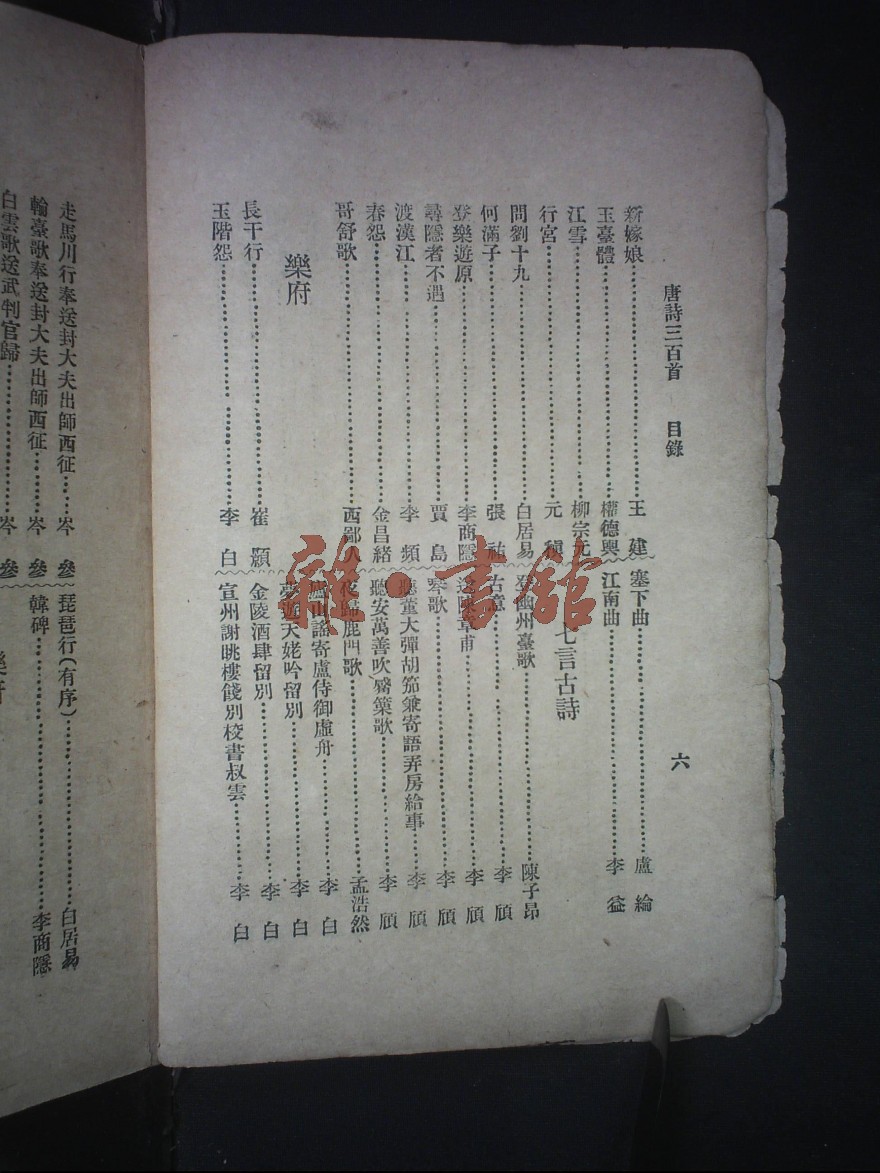 唐詩三百首 目錄 六
新嫁娘 王建
玉臺體 權德輿
江雪 柳宗元
行宮 元稹
問劉十九 白居易
何滿子 張祜
登樂遊原 李商隱
尋隱者不遇 賈島
渡漢江 李頻
春怨 金昌緒
哥舒歌 西鄙人
樂府
長干行 崔顥
玉階怨 李白
塞下曲 盧綸
江南曲 李益
七言古詩
登幽州臺歌 陳子昂
古意 李頎
送陳章甫 李頎
琴歌 李頎
聽董大彈胡笳兼寄語弄房給事 李頎
聽安萬善吹觱篥歌 李頎
夜歸鹿門歌 孟浩然
廬山謠寄盧侍御虛舟 李白
夢遊天姥吟留別 李白
金陵酒肆留別 李白
宣州謝眺樓餞別校書叔雲 李白
走馬川行奉送封大夫出師西征 岑參
輪臺歌奉送封大夫出師西征 岑參
白雲歌送武判官歸 岑參
琵琶行(有序) 白居易
韓碑 李商隱
雜·書館